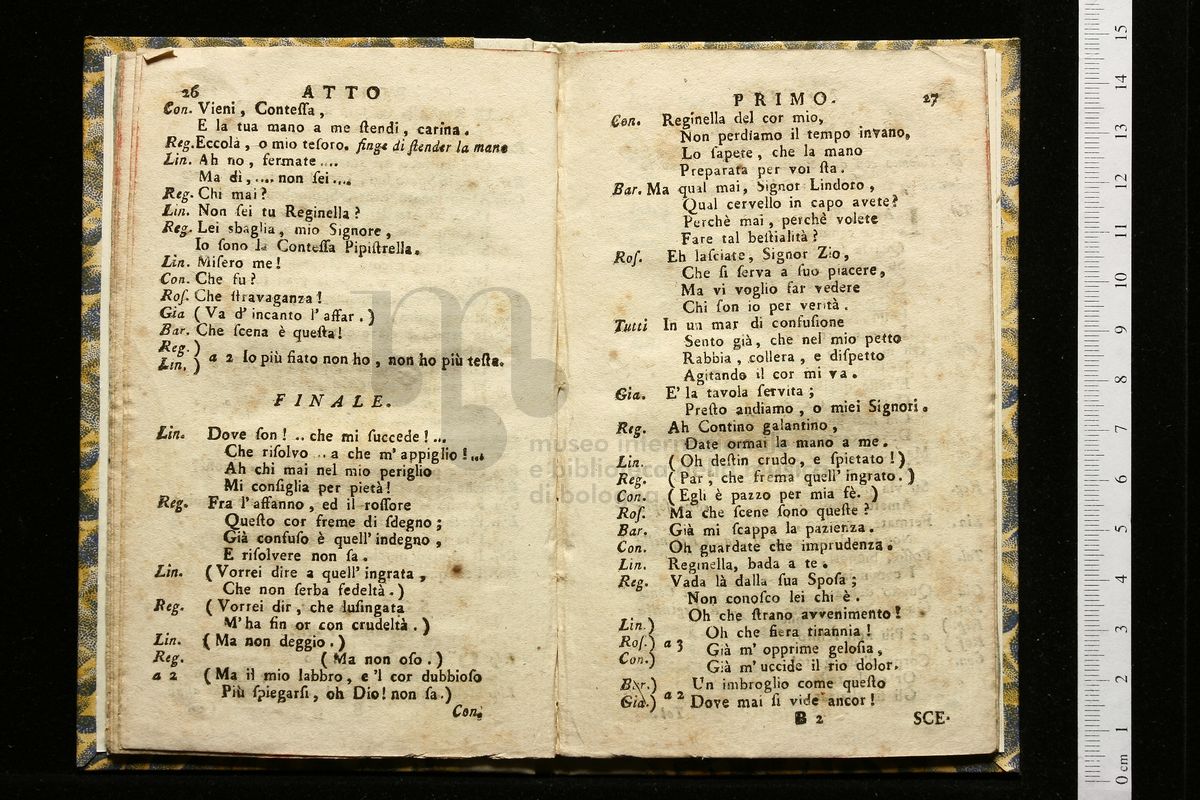 26 ATTO
Con. Vieni, Conteſſa,
E la tua mano a me ſtendi, carina.
Reg. Eccola, o mio teſoro. finge di ſtender la mano
Lin. Ah no, fermate ....
Ma di, .... non ſei ....
Reg. Chi mai?
Lin. Non ſei tu Reginella?
Reg. Lei sbaglia, mio Signore,
Io ſono la Conteſſa Pipiſtrella.
Lin. Miſero me!
Con. Che fu?
Roſ. Che ſtravaganza!
Gia (Va d'incanto l'affar.)
Bar. Che scena è queſta!
Reg. )
Lin. ) a 2 Io più fiato non ho, non ho più teſta.
FINALE.
Lin. Dove ſon! .. che mi ſuccede! ...
Che riſolvo .. a che m'appiglio! ...
Ah chi mai nel mio periglio
Mi conſiglia per pietà!
Reg. Fra l'affanno, ed il roſſore
Queſto cor freme di ſdegno;
Già confuſo è quell'indegno,
E riſolvere non ſa.
Lin. (Vorrei dire a quell'ingrata,
Che non ſerba fedeltà.)
Reg. (Vorrei dir, che luſingata
M'ha fin or con crudeltà.)
Lin. (Ma non deggio.)
Reg. (Ma non oſo.)
a 2 (Ma il mio labbro, e'l cor dubbioſo
Più ſpiegarſi, oh Dio! non ſa.)
Con.
PRIMO. 27
Con. Reginella del cor mio,
Non perdiamo il tempo invano,
Lo ſapete, che la mano
Preparata per voi ſta.
Bar. Ma qual mai, Signor Lindoro,
Qual cervello in capo avete?
Perchè mai, perchè volete
Fare tal beſtialità?
Roſ. Eh laſciate, Signor Zio,
Che ſi ſerva a ſuo piacere,
Ma vi voglio far vedere
Chi ſon io per verità.
Tutti In un mar di confuſione
Sento già, che nel mio petto
Rabbia, collera, e diſpetto
Agitando il cor mi va.
Gia. E' la tavola ſervita;
Preſto andiamo, o miei Signori.
Reg. Ah Contino galantino,
Date ormai la mano a me.
Lin. (Oh deſtin crudo, e ſpietato!)
Reg. (Par, che frema quell'ingrato.)
Con. (Egli è pazzo per mia fè. )
Roſ. Ma che ſcene ſono queſte?
Bar. Già mi ſcappa la pazienza.
Con. Oh guardate che imprudenza.
Lin. Reginella, bada a te.
Reg. Vada là dalla ſua Spoſa;
Non conoſco lei chi è.
Oh che ſtrano avvenimento!
Lin. ) Oh che fiera tirannia!
Roſ. ) a 3 Già m'opprime geloſia,
Con. ) Già m'uccide il rio dolor.
Bar. ) Un imbroglio come queſto
Gia. ) a 2 Dove mai ſi vide ancor!
B 2 SCE-
museo
e biblio
di bologna
0 cm 1 2 3 4 5 6 7 8 9 10 11 12 13 14 15